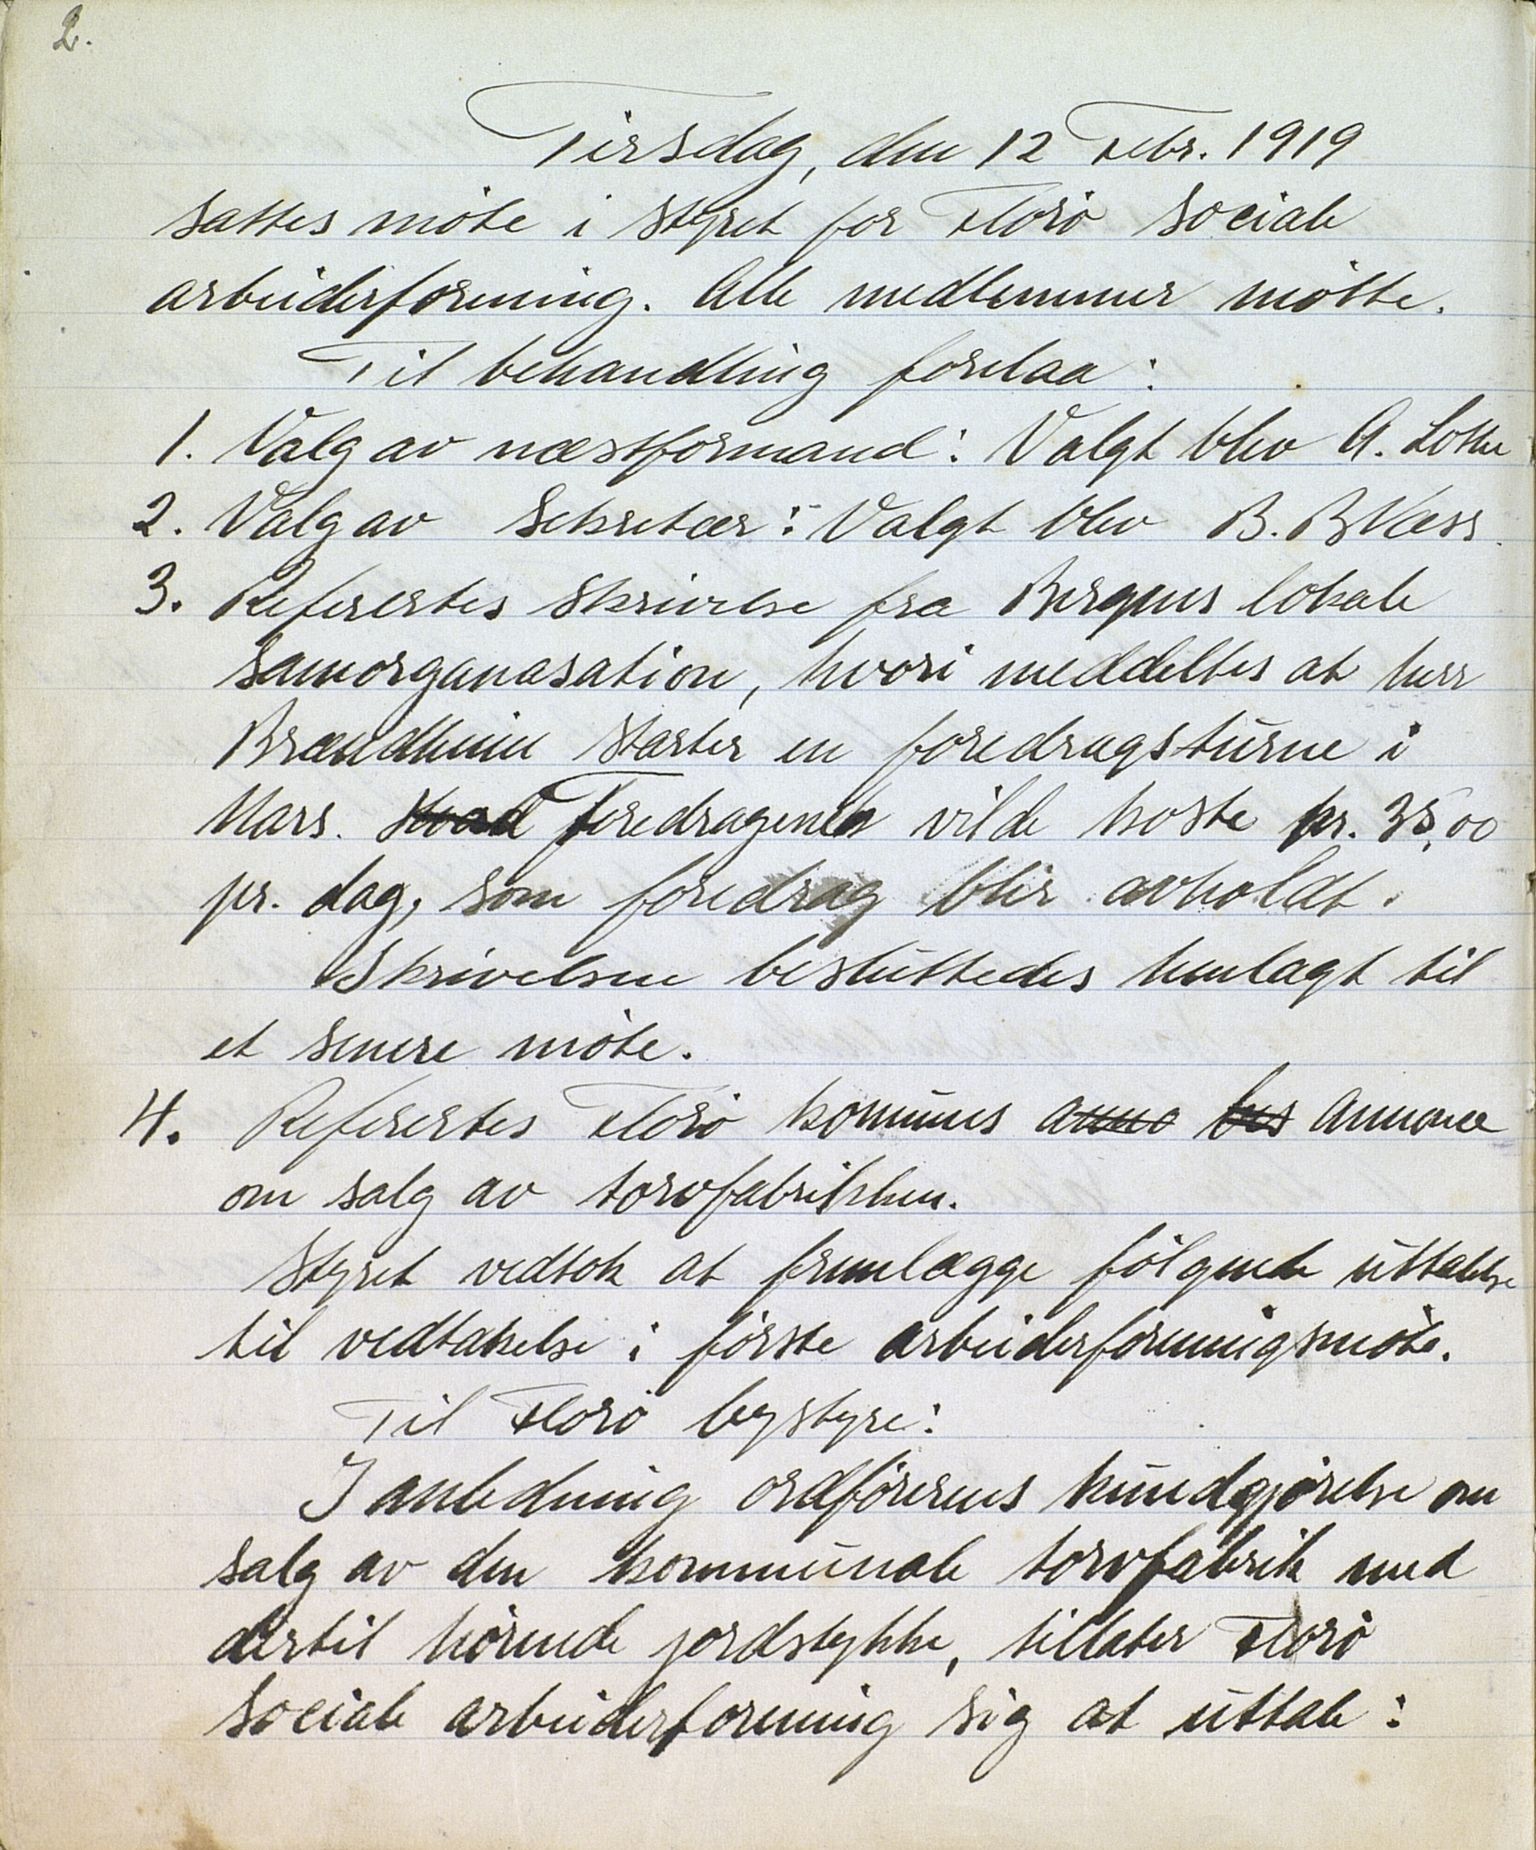 2.
Tirsdag, den 12 Febr. 1919
sattes møte i styret for Florø sociale
arbeiderforening. Alle medlemmer møtte.
Til behandling forelaa:
1. Valg av næstformand: Valgt blev A. Lothe
2. Valg av Sekretær: Valgt blev B. B Væss.
3. Referertes skrivelse fra Bergens lokale
samorganasation, hvori meddeltes at herr
Brændheim starter en foredragsturne i
Mars. Foredragene vilde koste kr. 35,00
pr. dag, som foredrag blir avholdt.
Skrivelsen besluttedes henlagt til
et senere møte.
4. Referertes Florø komunes anno bes annonce
om salg av torvfabrikken.
Styret vedtok at fremlægge følgende uttalelse
til vedtakelse i første arbeiderforeningsmøte.
Til Florø bystyre:
I anledning ordførerens kundgjørelse om
salg av den kommunale torvfabrik med
dertil hørende jordstykke, tillater Florø
sociale arbeiderforening sig at uttale: